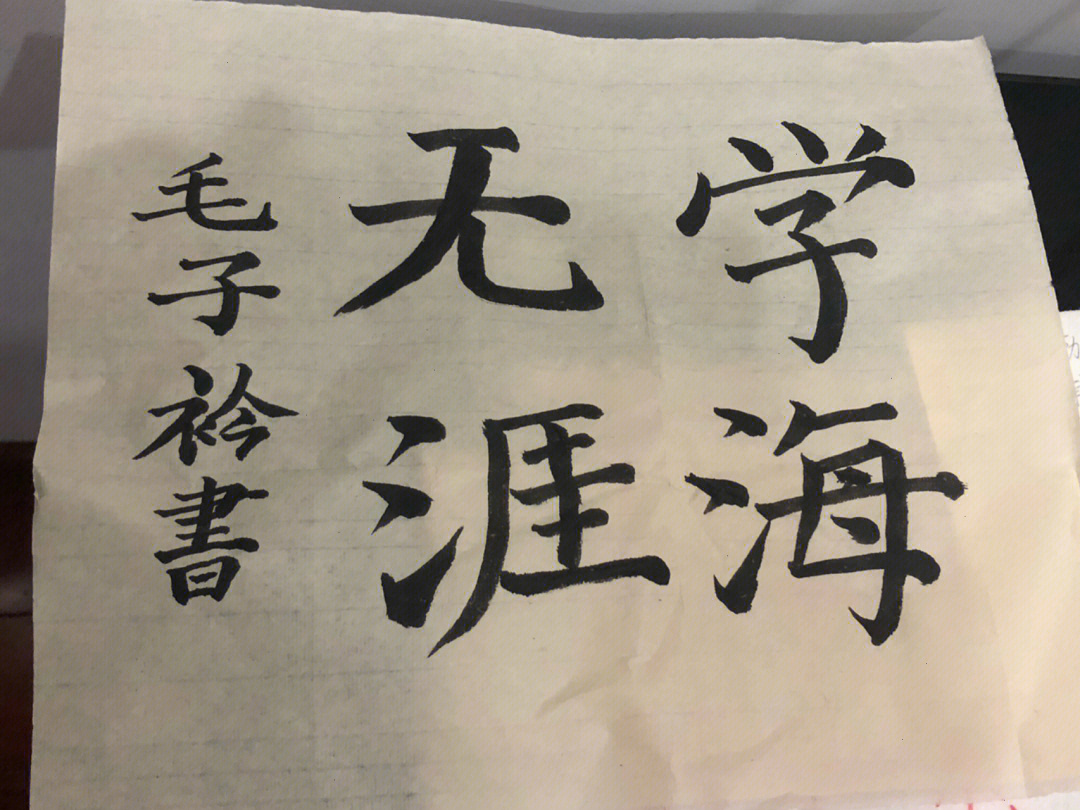 学海
无涯
毛子衿書